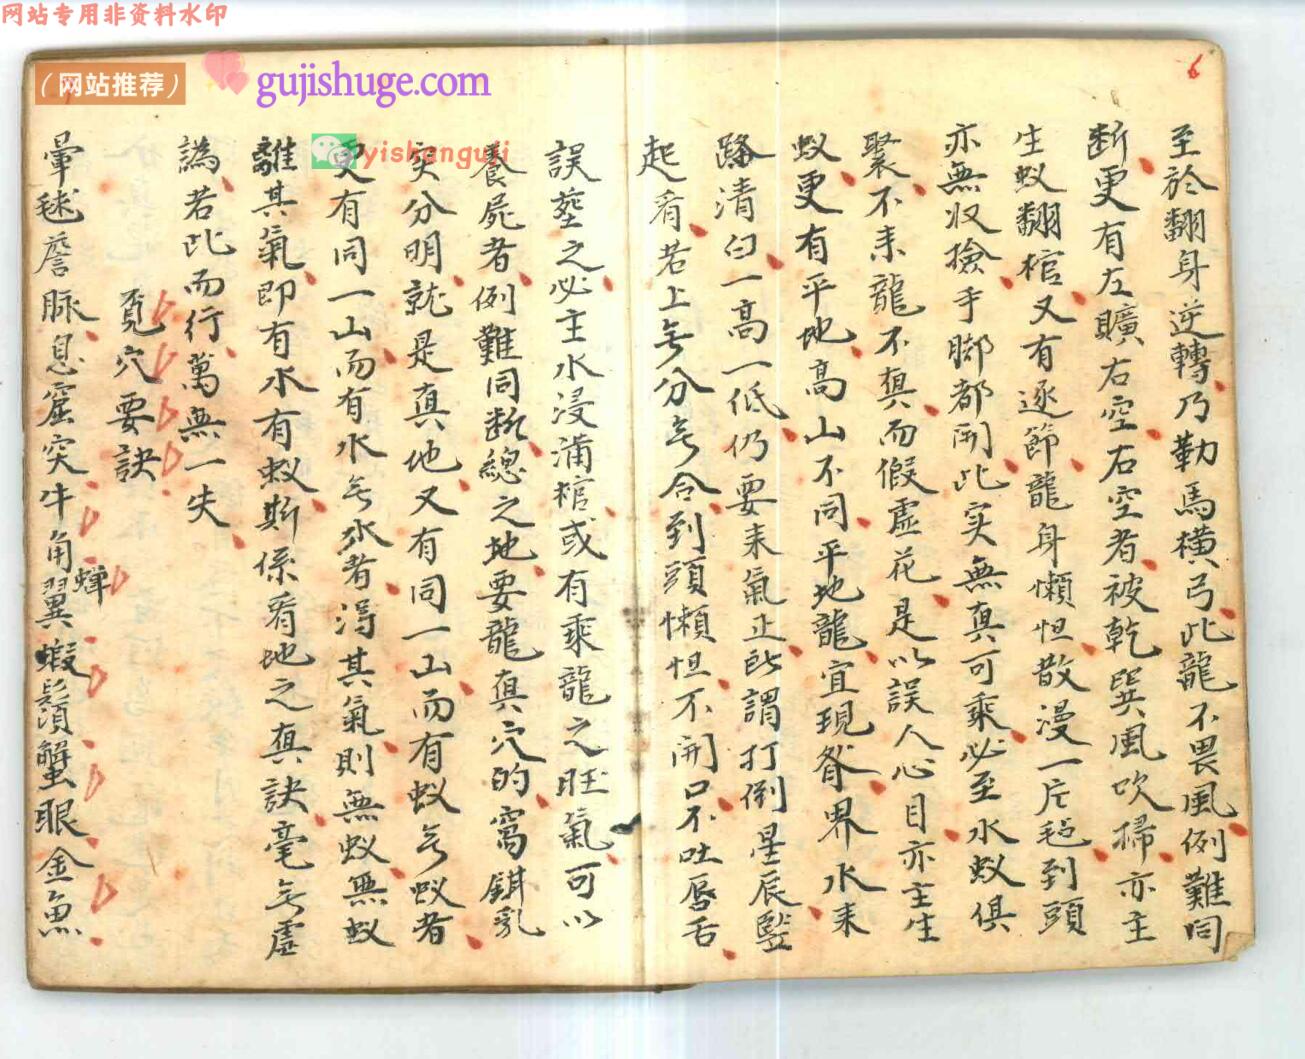 网站专用非资料水印
（网站推荐）
gujishuge.com
yishanguji
6
至於翻身逆轉乃勒馬橫弓此龍不畏風例難同
断更有左曠右空右空者被乾巽風吹掃亦主
生蚁翻棺又有逐節龍身懶怛散漫一片毡到頭
亦無收撿手脚都開此实無真可乘必至水蚁俱
聚不来龍不真而假虛花是以誤人心目亦主生
蚁更有平地高山不同平地龍宜現脊界水来
路清白一高一低仍要来氣正所謂打倒星辰竪
起看若上无分无合到頭懶怛不開口不吐唇舌
誤塟之必主水浸滿棺或有乘龍之旺氣可以
養屍者例難同断總之地要龍真穴的窩鉗乳
突分明就是真地又有同一山而有蚁无蚁者
更有同一山而有水无水者得其氣則無蚁無蚁
離其氣即有水有蚁斯係看地之真訣毫无虛
譌若此而行萬無一失
覔穴要訣
暈毬簷脉息窟突牛角翼蝦鬚蟹眼金魚
蟬